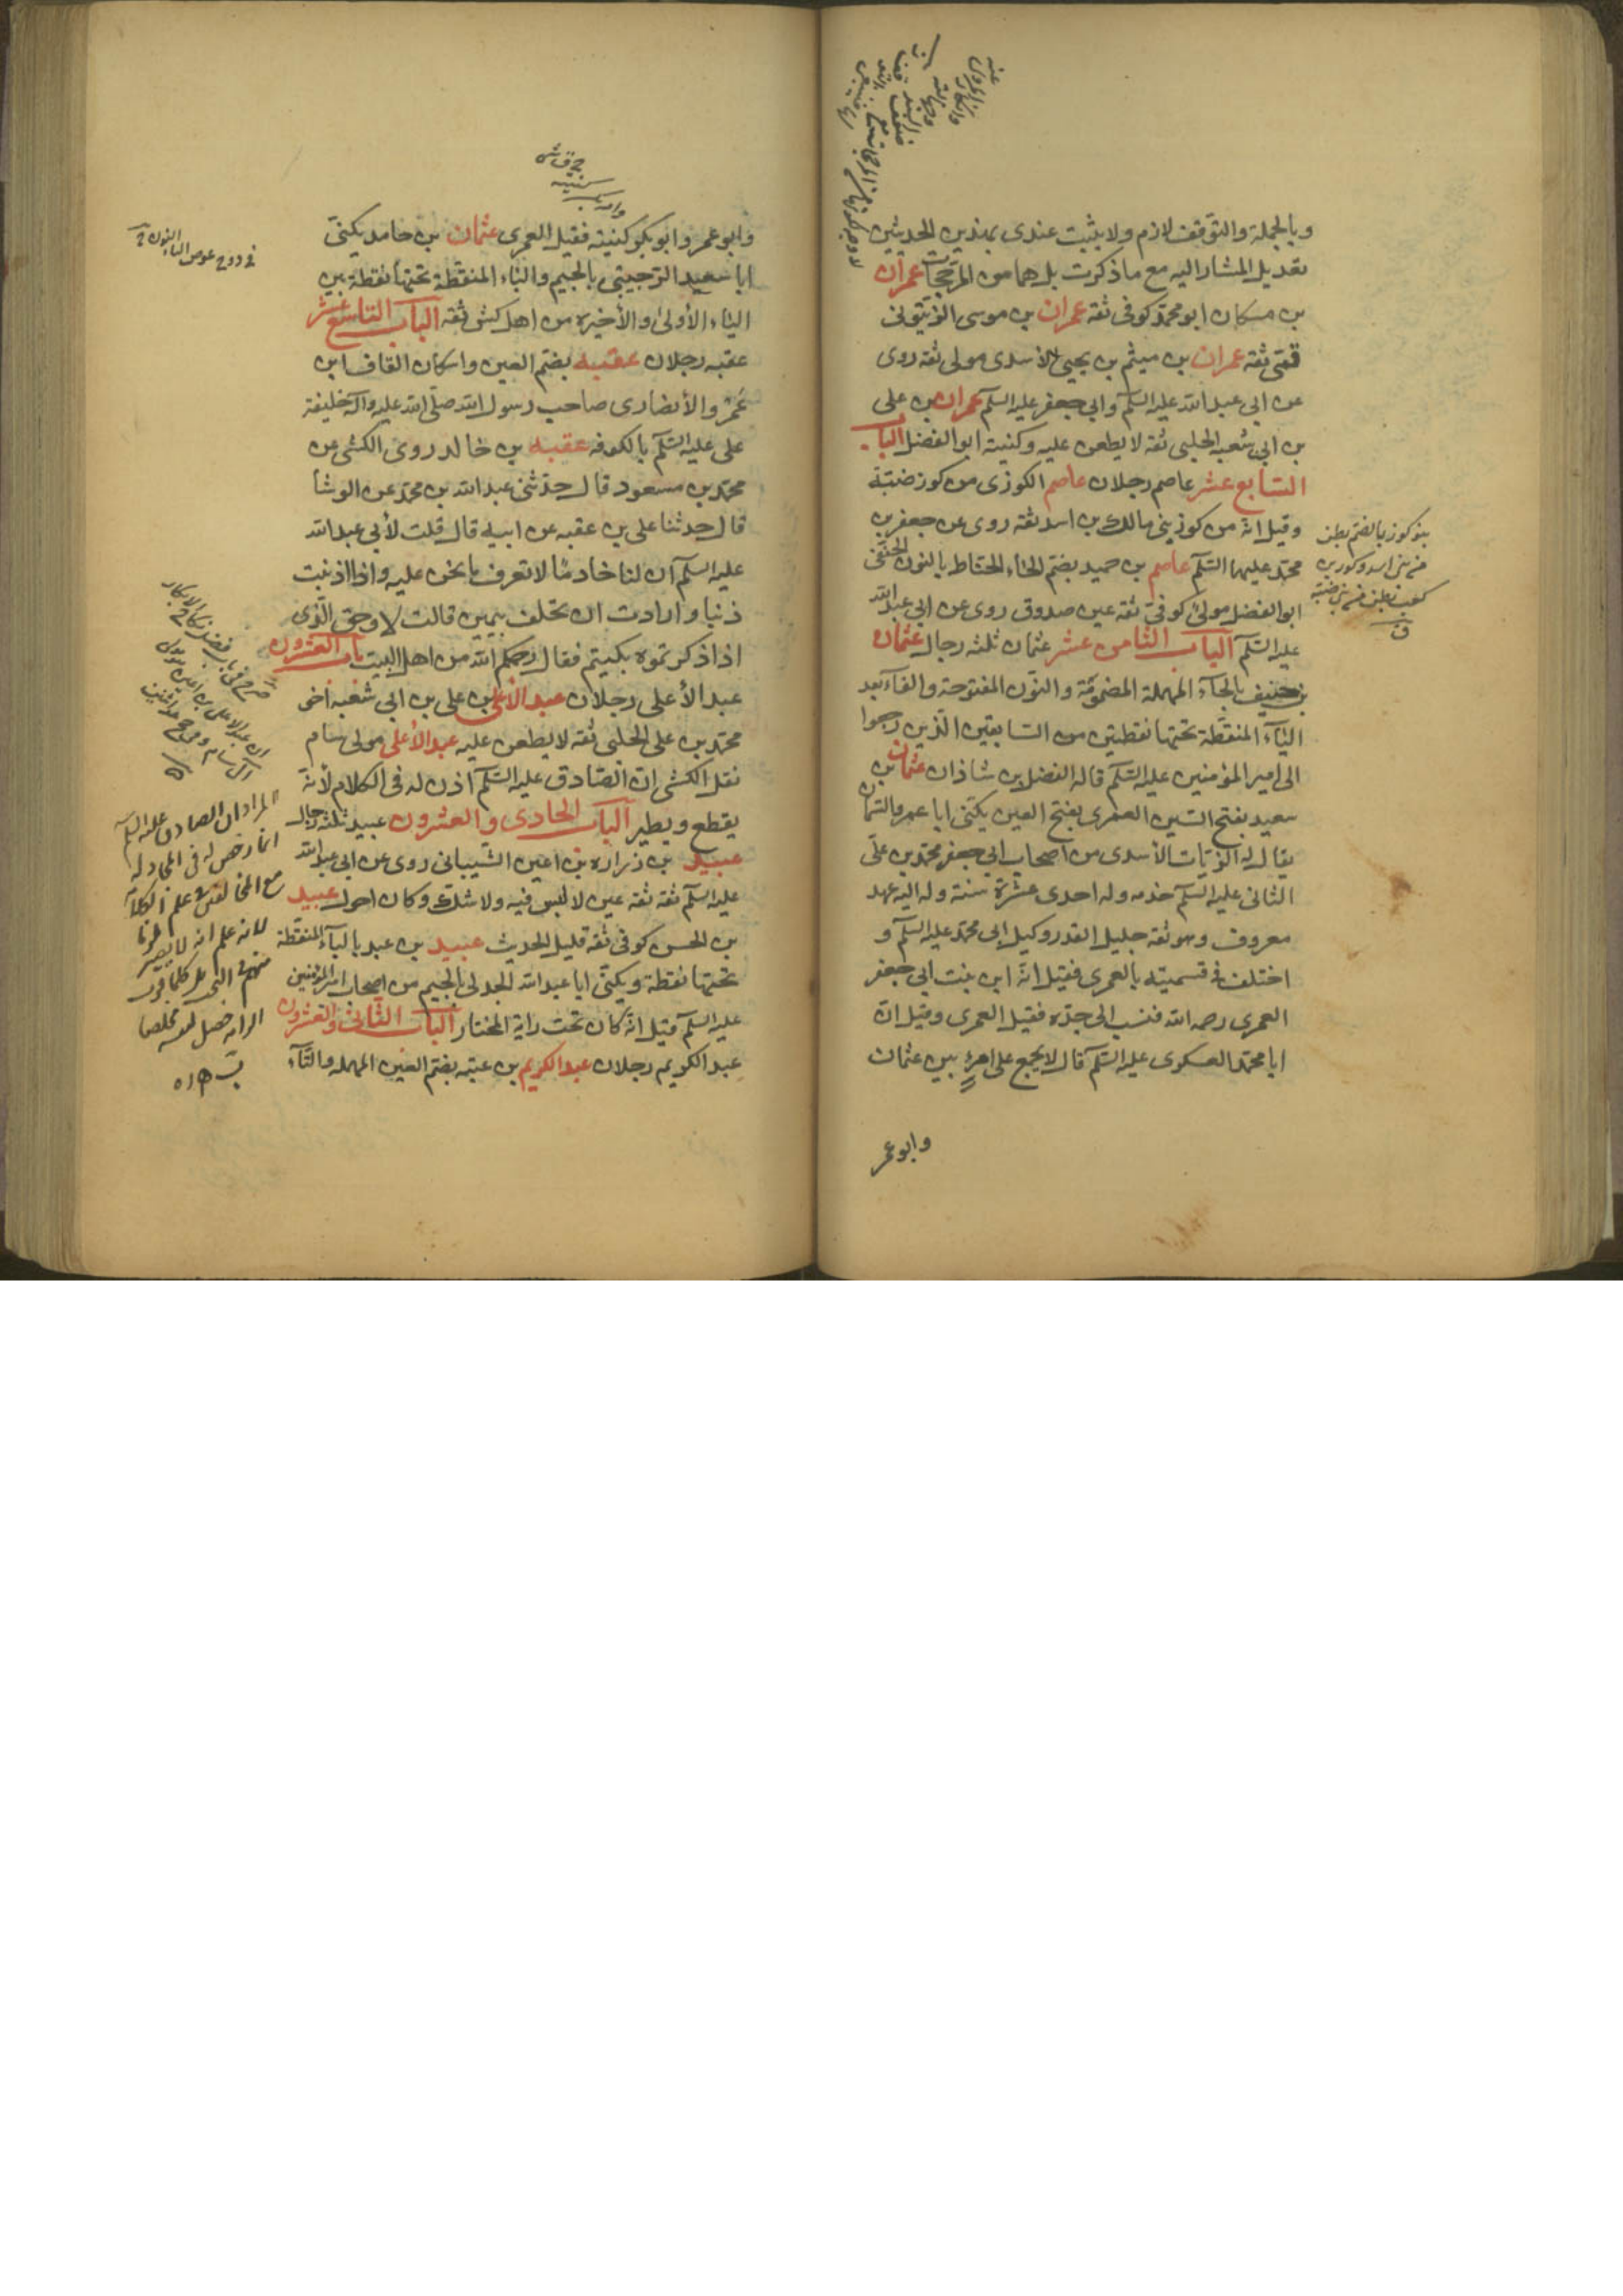 وبالجملة والتوقف لازم ولا يثبت عندى بهذين الحديثين
تعديل المشار اليه مع ما ذكرت بل هما من المرجحات عمران
بن مسكان ابو محمد كوفى ثقة عمران بن موسى الزيتونى
قمّى ثقة عمران بن ميثم بن يحيى الاسدى مولى ثقه روى
عن ابى عبد الله عليه السلم وابى جعفر عليه السلم عمران بن على
بن ابى شعبه الحلبى ثقة لا يطعن عليه وكنيته ابو الفضل الباب
السّابع عشر عاصم رجلان عاصم الكوزى من كوز ضبّة
وقيل انه من كوز بنى مالك بن اسد ثقه روى عن جعفر بن
محمّد عليهما السّلم عاصم بن حميد بضم الحاء الحناط بالنون الحنفى
ابو الفضل مولى كوفىّ ثقه عين صدوق روى عن ابى عبد الله
عليه السّلم الباب الثامن عشر عثمان ثلثه رجال عثمان
بن حنيف بالحآء المهملة المضمومّة والنّون المفتوحة والفاء بعد
اليآء المنقّطة تحتها نقطتين من السّابقين الّذين رجعوا
الى امير المؤمنين عليه السّلم قاله الفضل بن شاذان عثمان بن
سعيد بفتح السّين العمرى بفتح العين يكنّى ابا عمرو السّمان
يقال له الزيّات الأسدى من اصحاب ابى جعفر محمّد بن علىّ
الثانى عليه السلم خدمه وله احدى عشرة سنة وله اليه عهد
معروف وهو ثقه جليل القدر وكيل ابى محمّد عليه السلم و
اختلف فى تسميته بالعمرى فقيل انّه ابن بنت ابى جعفر
العمرى رحمه الله فنسب الى جدّه فقيل العمرى وقيل انّ
ابا محمّد العسكرى عليه السّلم قال لا يجمع على امرئٍ بين عثمان
وابو عمر
بنو كوز بالضم بطن
من بنى اسد وكوز بن
كعب بطن من بنى ضبة
ق
وابو عمر وابو بكر كنيته فقيل العمرى عثمان بن حامد يكنّى
ابا سعيد الوجينى بالجيم والياء المنقّطة تحتها نقطة بين
الياء الأولى والأخيره من اهل كش ثقه الباب التاسع عشر
عقبه رجلان عقبه بضم العين واسكان القاف ابن
عَمْرو الأنصارى صاحب رسول الله صلّى الله عليه وآله خليفة
على عليه السّلم بالكوفه عقبه بن خالد روى الكشى عن
محمّد بن مسعود قال حدّثنى عبد الله بن محمّد عن الوشأ
قال حدثنا على بن عقبه عن ابيه قال قلت لأبى عبد الله
عليه السلم ان لنا خادمًا لا تعرف ما نحن عليه واذا اذنبت
ذنبا وارادت ان تحلف بيمين قالت لا وحق الّذى
اذا ذكرتموه بكيتم فقال رحمكم الله من اهل البيت باب العشرون
عبد الأعلى رجلان عبد الأعلى بن على بن ابى شعبه اخى
محمّد بن على الحلبى ثقه لا يطعن عليه عبد الأعلى مولى سام
نقل الكشى انّ الصّادق عليه السّلم اذن له فى الكلام لأنه
يقطع ويطير الباب الحادى والعشرون عبيد ثلثه رجال
عبيد بن زراره بن اعين الشّيبانى روى عن ابى عبد الله
عليه السلم ثقه ثقه عين لا لبس فيه ولا شكّ وكان احول عبيد
بن الحسن كوفى ثقه قليل الحديث عبيد بن عبد بالبآء المنقّطة
تحتها نقطة ويكنّى ابا عبد الله الجدلى بالجيم من اصحاب امير المؤمنين
عليه السلم قيل انّه كان تحت راية المختار الباب الثانى والعشرون
عبد الكريم رجلان عبد الكريم بن عتبه بضمّ العين المهمله والتّآء
المراد ان الصادق عليه السلم
انما رخص له فى المجادلة
مع المخالفين فى علم الكلام
لانه علم انه لا يصير